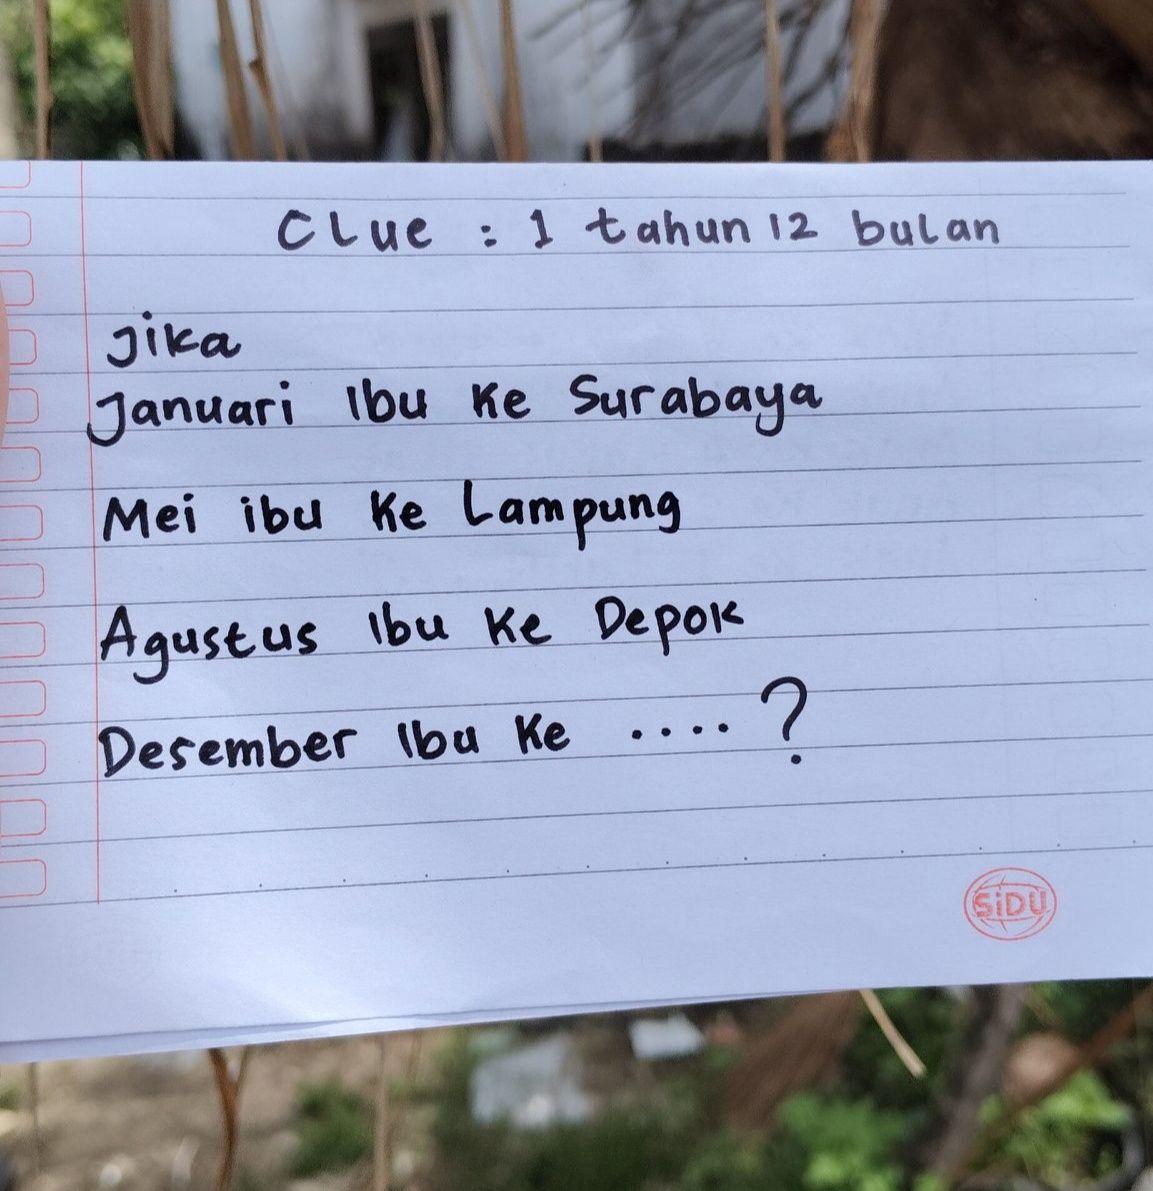 Clue : 1 tahun 12 bulan
Jika
Januari Ibu ke Surabaya
Mei ibu ke Lampung
Agustus Ibu ke Depok
Desember Ibu ke ....?
SiDU